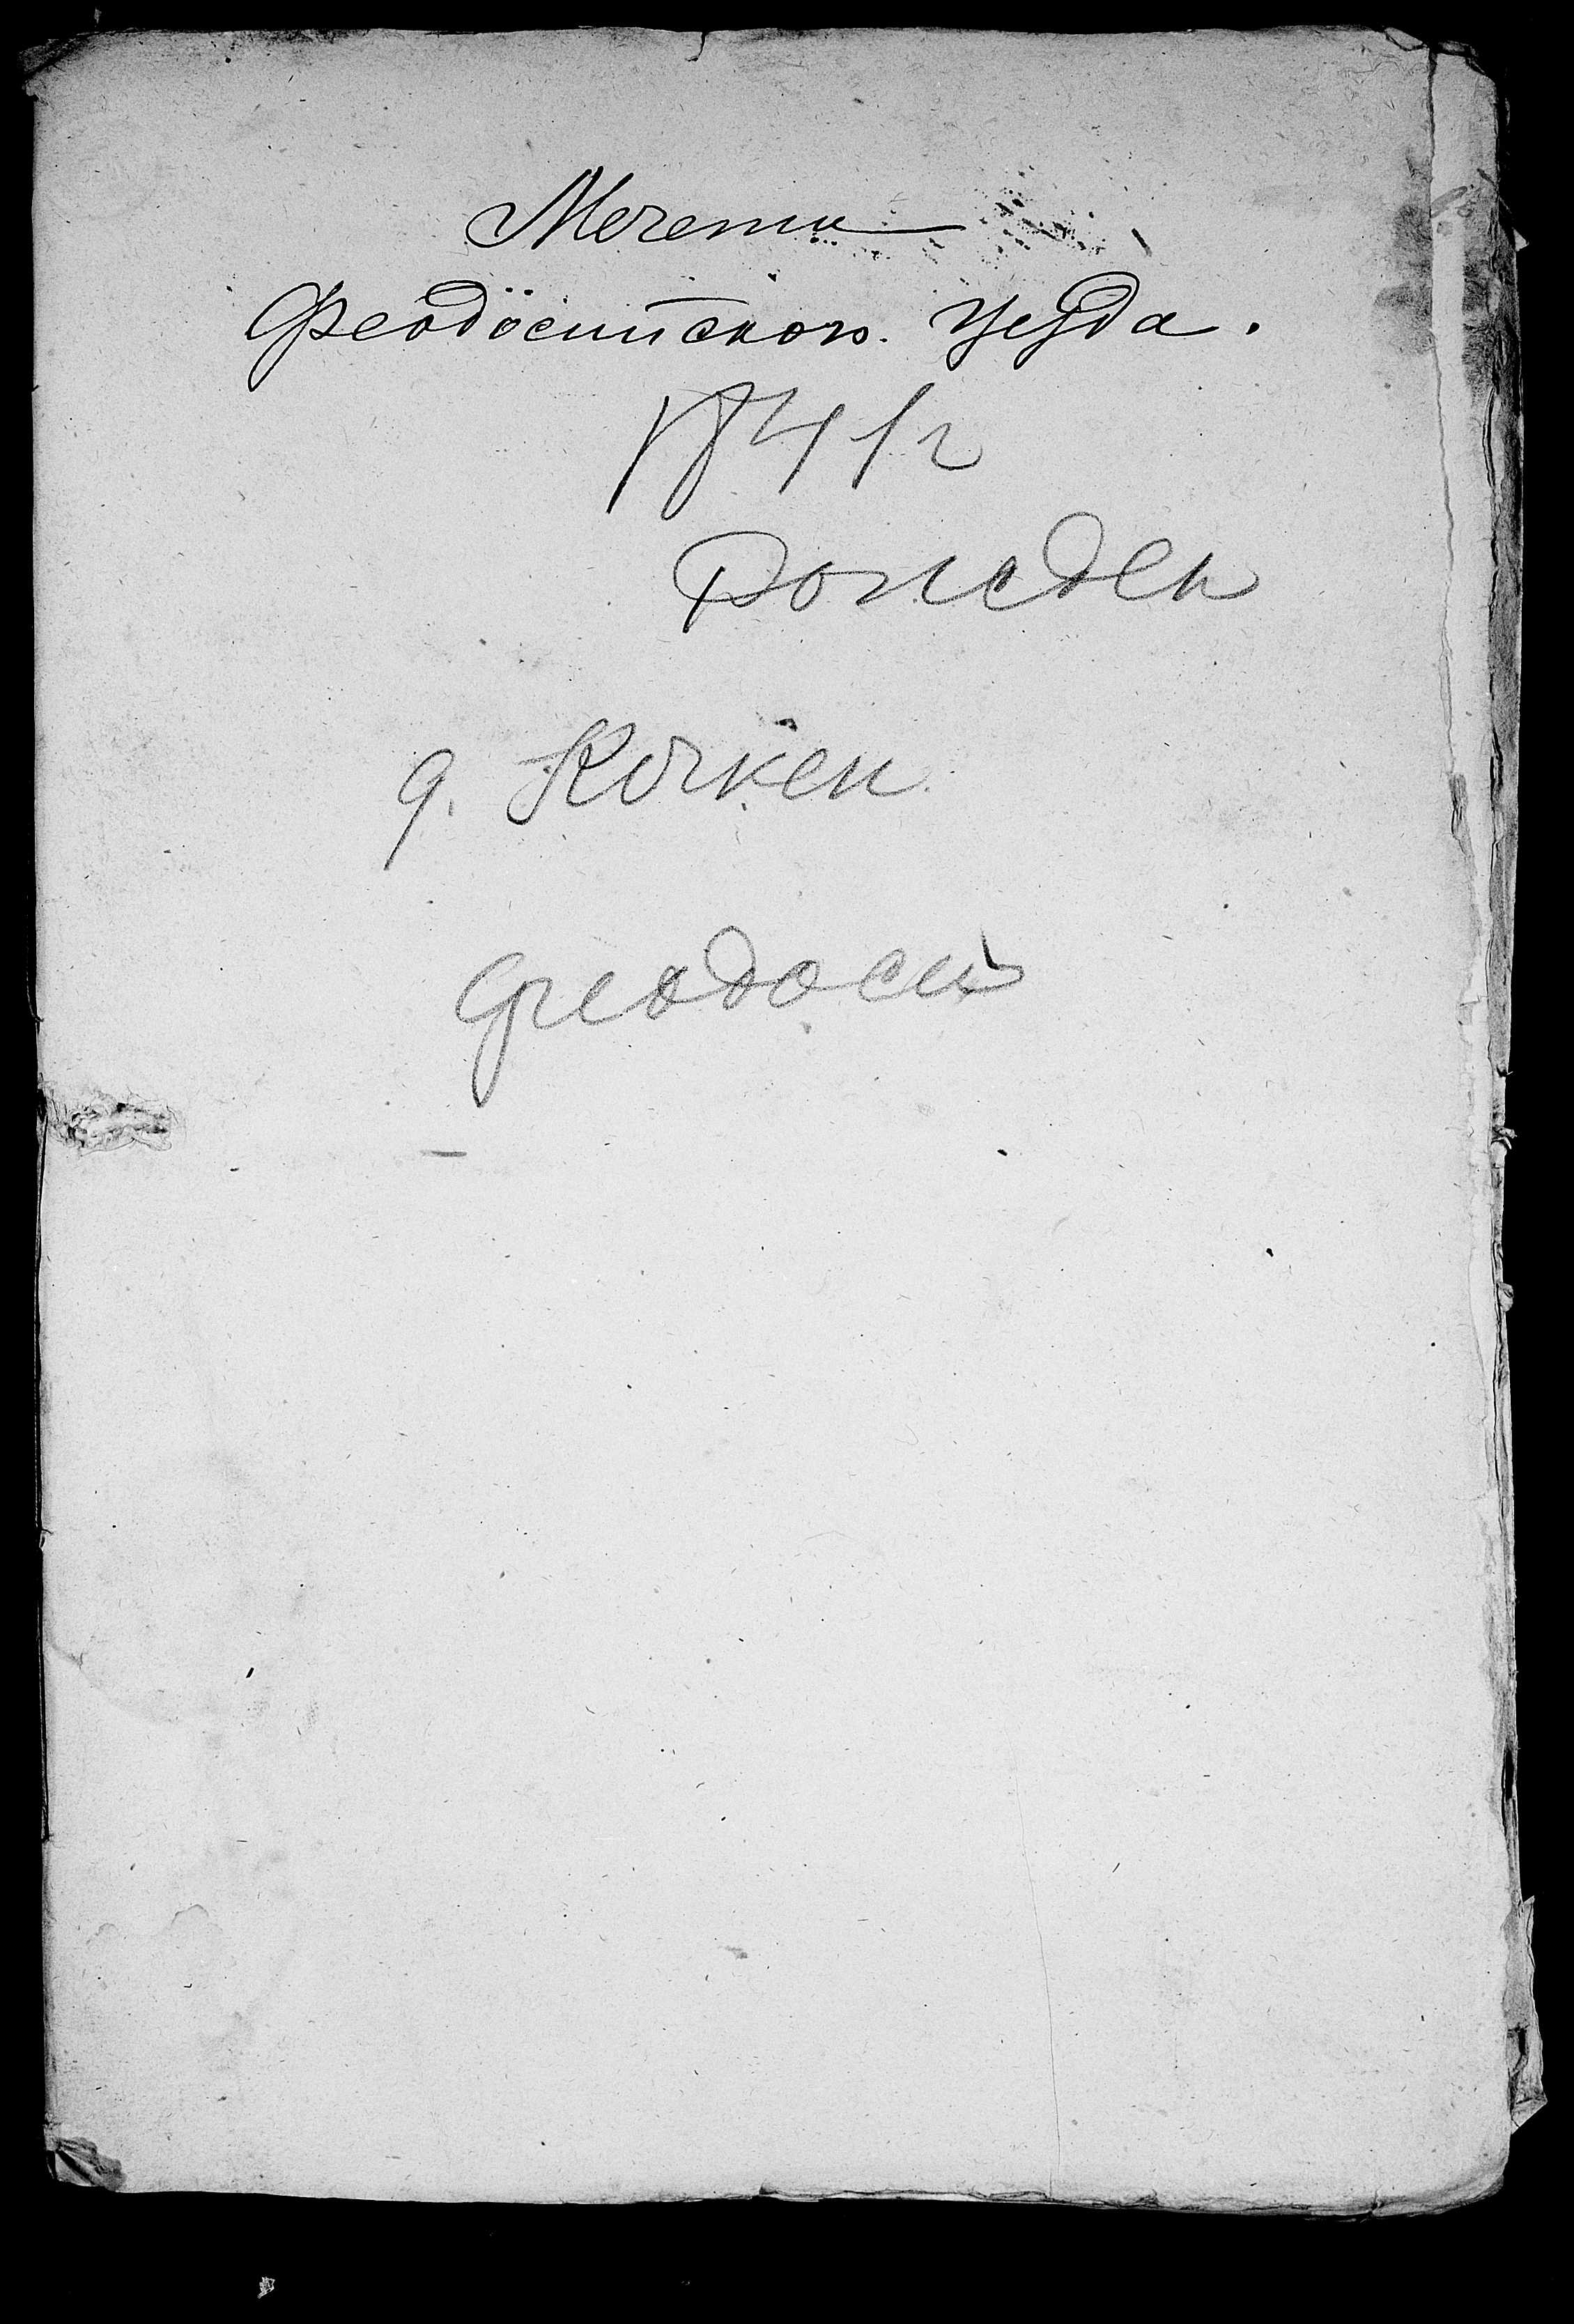 Мечети
Феодосийского уезда.
1841 г
д. Коккен
Феодосия